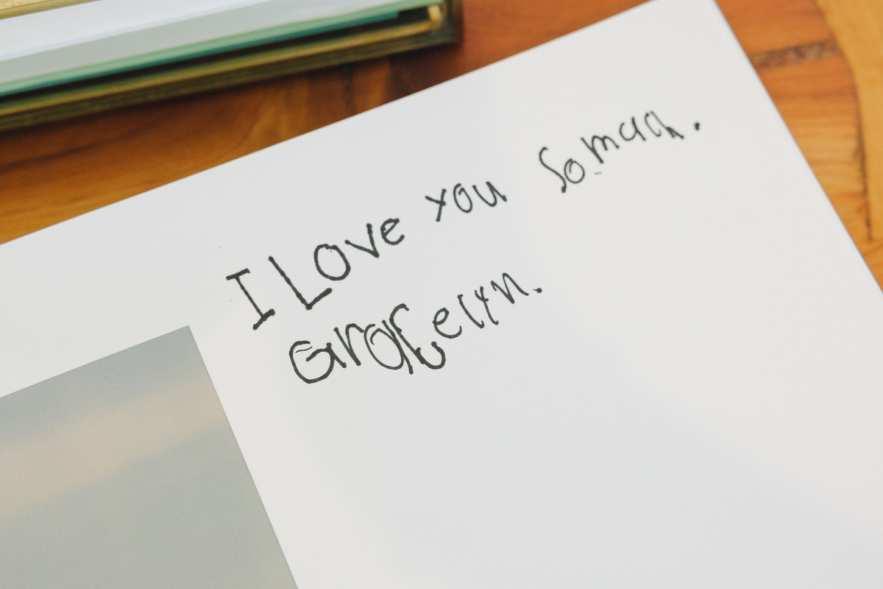 I Love you So much.
Gracelyn.